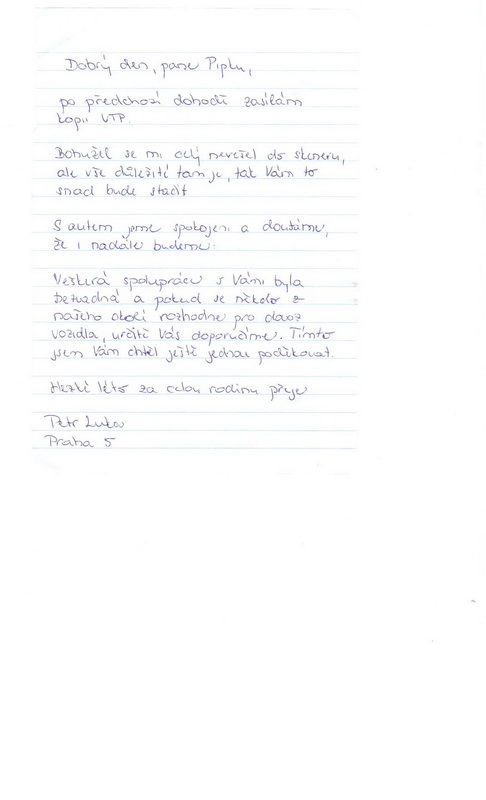 Dobrý den, pane Pipku,
po předchozí dohodě zasílám
kopii VTP.
Bohužel se mi celý nevešel do skeneru,
ale vše důležité tam je, tak Vám to
snad bude stačit
S autem jsme spokojeni a doufáme,
že i nadále budeme.
Veškerá spolupráce s Vámi byla
bezvadná a pokud se někdo z
našeho okolí rozhodne pro dovoz
vozidla, určitě Vás doporučíme. Tímto
jsem Vám chtěl ještě jednou poděkovat.
Hezké léto za celou rodinu přeje
Petr Luka
Praha 5